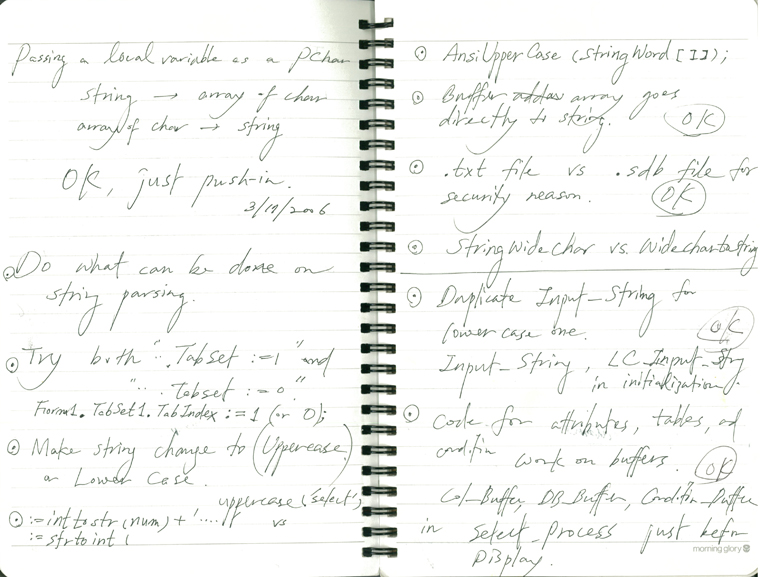 Passing a local variable as a PChar
string → array of char
array of char → string
OK, just push-in.
3/19/2006
Do what can be done on
string parsing.
Try both "... TabSet := 1" and
"... Tabset := 0"
Form1.TabSet1.TabIndex := 1 (or 0);
Make string change to (Uppercase)
or Lower Case.
uppercase('select');
:= inttostr(num) + '.....' vs
:= strtoint (
AnsiUpperCase (StringWord [I]);
Buffer array goes
directly to string. OK
.txt file vs .sdb file for
security reason. OK
StringWideChar vs. Widechartostring
Duplicate Input_String for
lower case one. OK
Input_String, LC_Input_Strg
in initialization.
Code for attributes, tables, ad
condition work on buffers. OK
Col_Buffer, DB_Buffer, Condition_Buffer
in Select_Process just before
Display.
morning glory